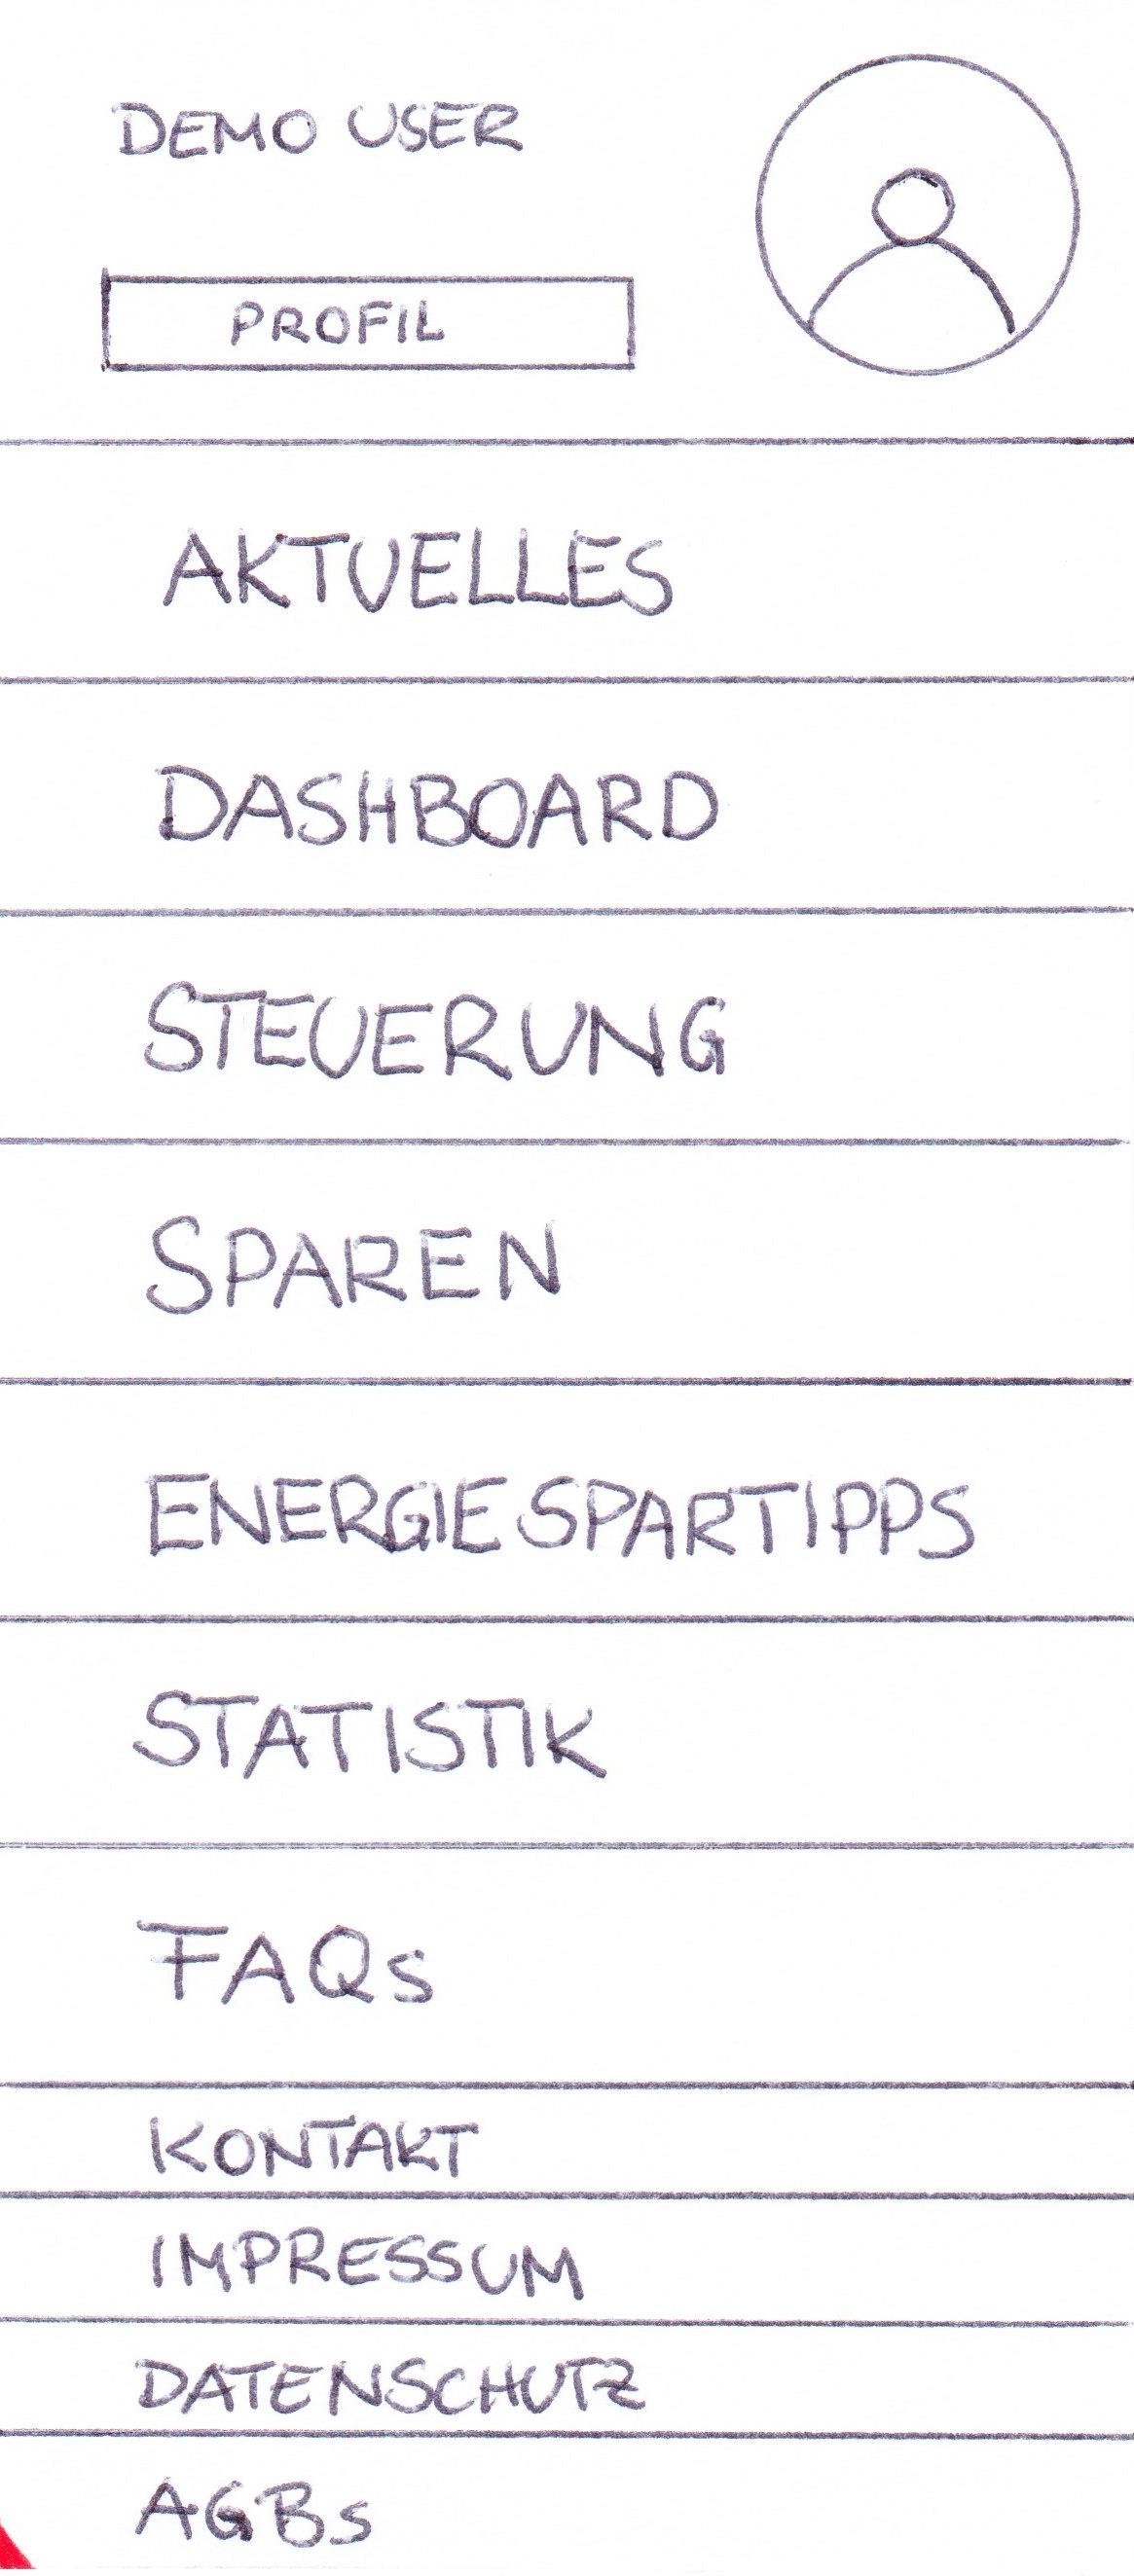 DEMO USER
PROFIL
AKTUELLES
DASHBOARD
STEUERUNG
SPAREN
ENERGIESPARTIPPS
STATISTIK
FAQs
KONTAKT
IMPRESSUM
DATENSCHUTZ
AGBs